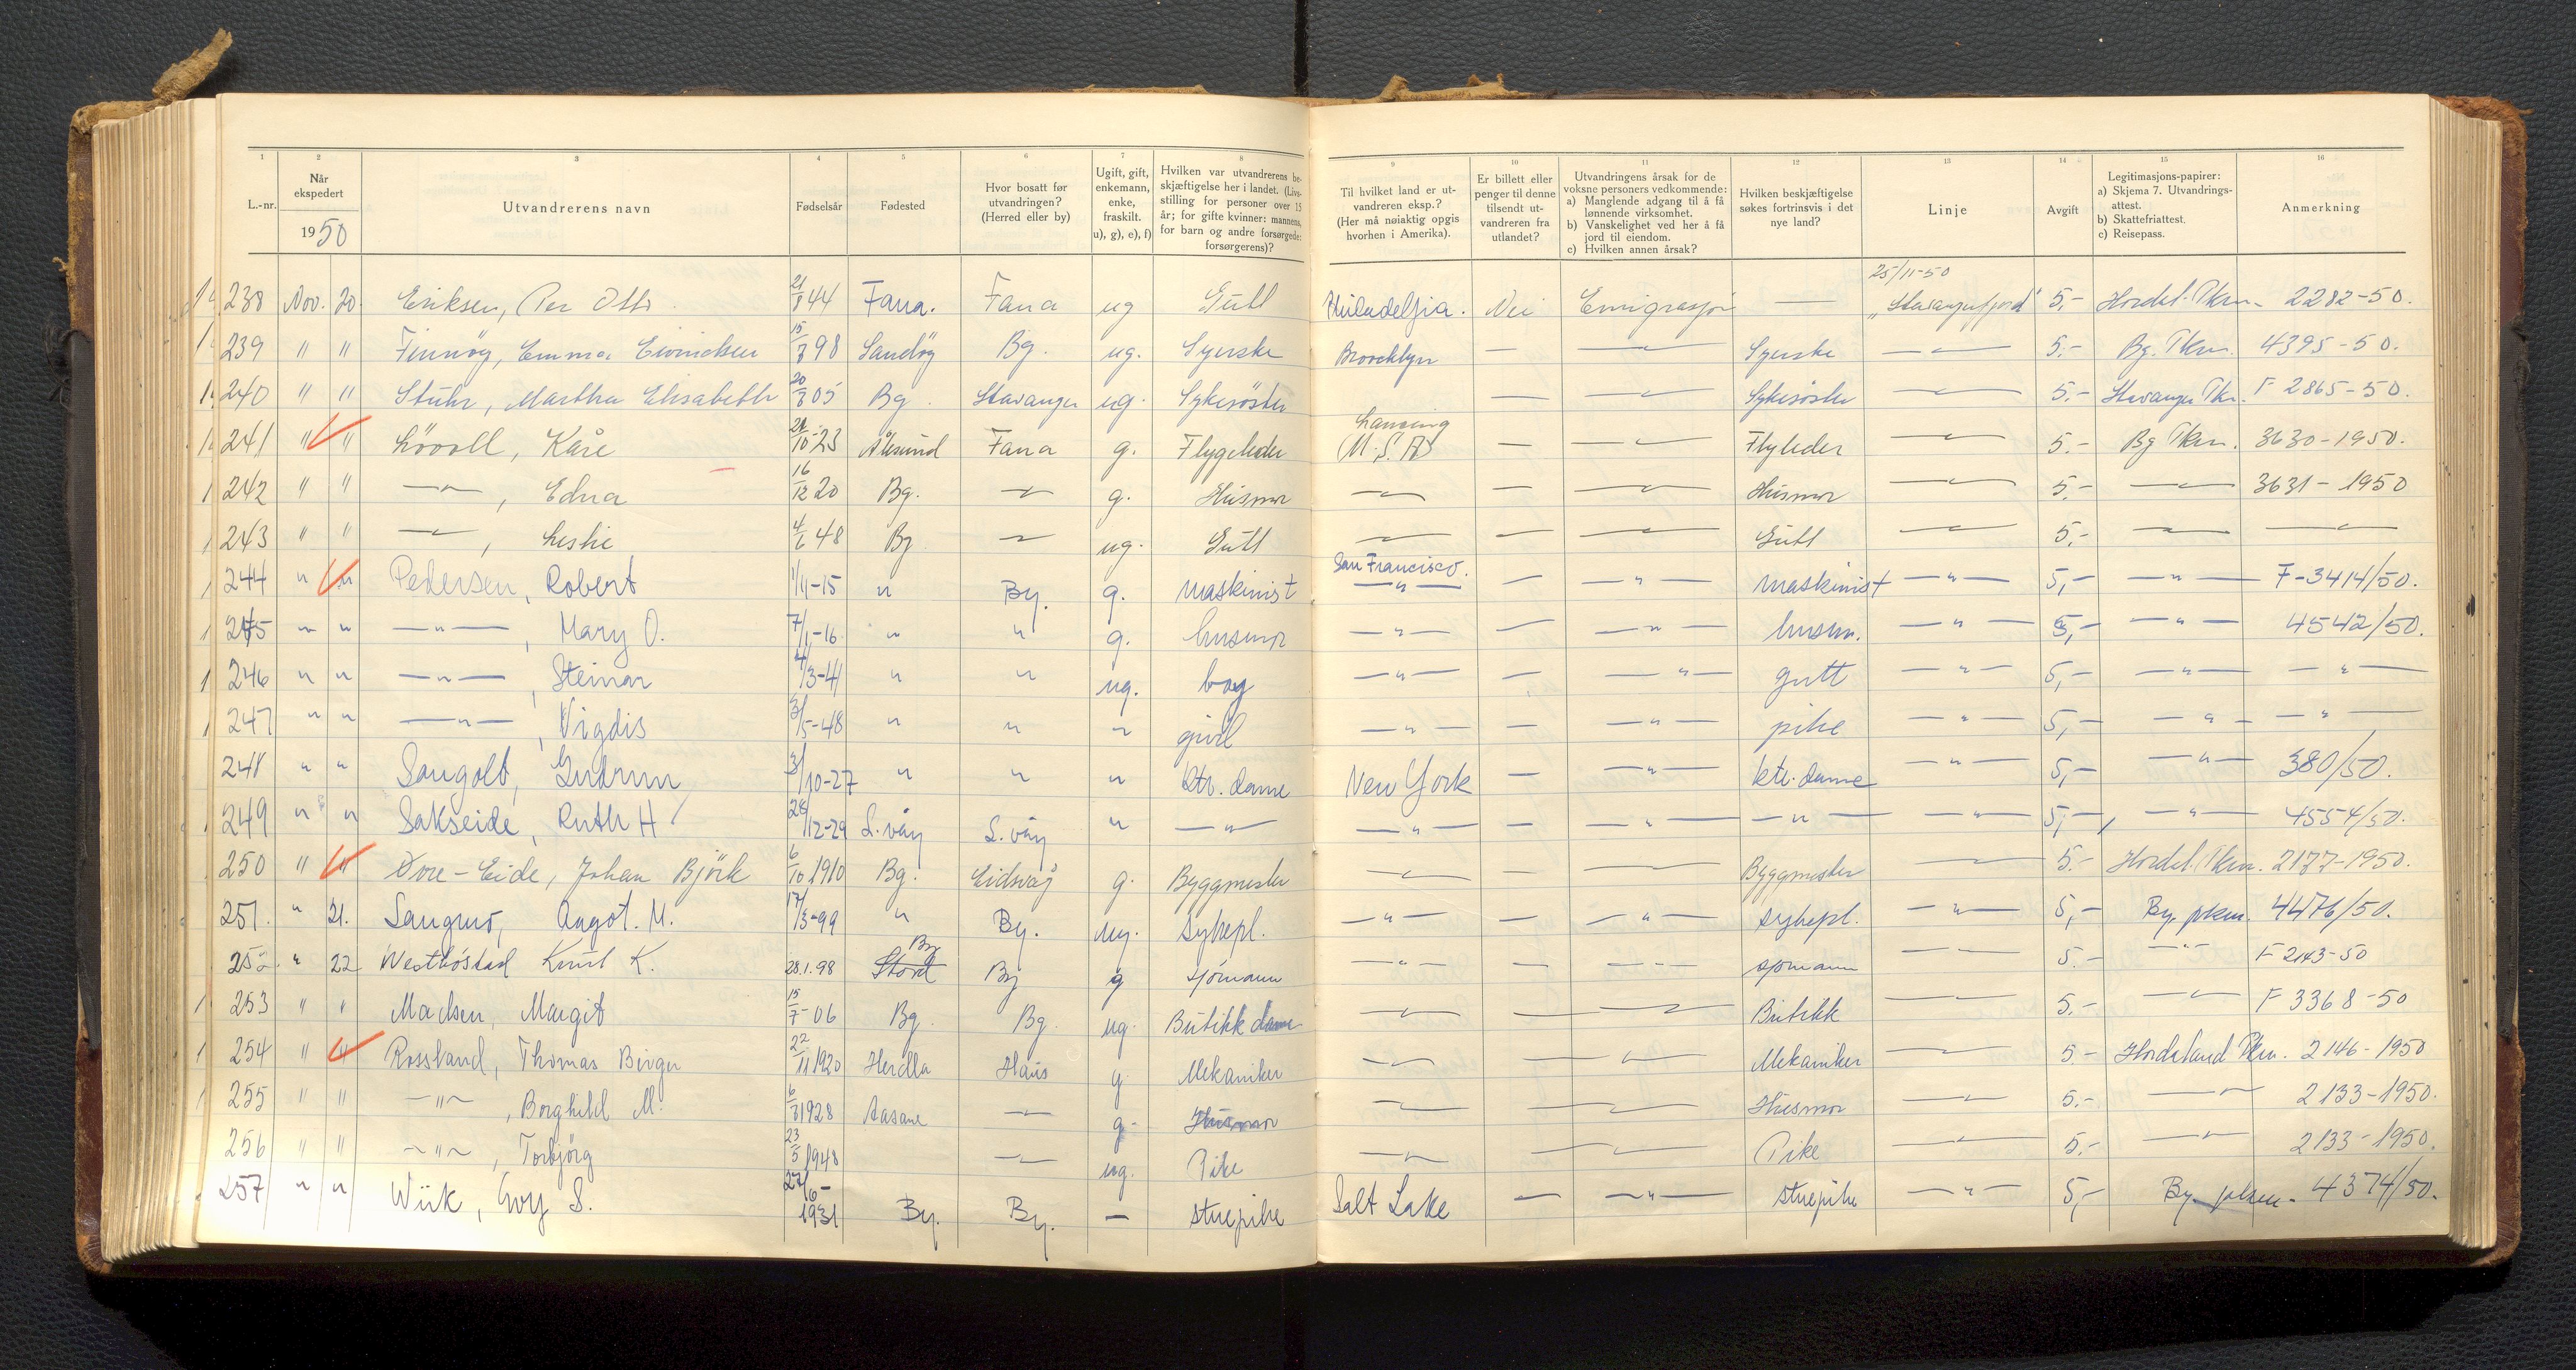 1 2 3 4 5 6 7 8 9 10 11 12 13 14 15 16
L.-nr. Når ekspedert 1950 Utvandrerens navn Fødselsår Fødested Hvor bosatt før utvandringen? (Herred eller by) Ugift, gift, enkemann, enke, fraskilt. u), g), e), f) Hvilken var utvandrerens beskjæftigelse her i landet. (Livsstilling for personer over 15 år; for gifte kvinner: mannens, for barn og andre forsørgede: forsørgerens)? Til hvilket land er utvandreren eksp.? (Her må nøiaktig opgis hvorhen i Amerika). Er billett eller penger til denne tilsendt utvandreren fra utlandet? Utvandringens årsak for de voksne personers vedkommende: a) Manglende adgang til å få lønnende virksomhet. b) Vanskelighet ved her å få jord til eiendom. c) Hvilken annen årsak? Hvilken beskjæftigelse søkes fortrinsvis i det nye land? Linje Avgift Legitimasjons-papirer: a) Skjema 7. Utvandringsattest. b) Skattefriattest. c) Reisepass. Anmerkning
25/11-50
238 Nov. 20. Eriksen, Per Otto 21/8 44 Fana. Fana ug Gutt Philadelfia. Nei Emigrasjon — "Stavangerfjord" 5.- Hordal. Pkm. 2282-50.
239 " " Finnøy, Emma Eivindsen 15/8 98 Sandöy Bg. ug. Syerske Broocklyn — — Syerske — 5.- Bg. Pkm. 4395-50.
240 " " Stuhr, Martha Elisabeth 20/8 05 Bg. Stavanger ug. Sykesöster — — Sykesöster — 5.- Stavanger Pkr. F 2865-50.
241 " " Lövoll, Kåre 21/10-23 Ålesund Fana g. Flygeleder Lansing (U.S.A) — — Flyleder — 5.- Bg Pkm. 3630-1950.
242 " " —"—, Edna 16/12 20 Bg. — g. Husmor — — — Husmor — 5.- — 3631-1950
243 " " —, Leslie 4/6 48 Bg — ug. Gutt — — — Gutt — 5.- — —
244 " " Pedersen, Robert 1/11-15 " By. g. maskinist San Francisco. —"— — —"— maskinist —"— 5,- —"— F-3414/50.
245 " " —"—, Mary O. 7/1-16 " " g. husmor —"— — —"— husm. —"— 5,- —"— 4542/50.
246 " " —"—, Steinar 4/3-41 " " ug. boy —"— — —"— gutt —"— 5,- —"— —"—
247 " " —"—, Vigdis 3/5-48 " " " girl —"— — —"— pike —"— 5,- —"— —"—
248 " " Sangolt, Gudrun 3/10-27 " " " ktr. dame New York — —"— ktr. dame —"— 5,- —"— 380/50.
249 " " Sakseide, Ruth H 28/12-29 L. våg L. våg " —"— —"— — —"— —"— —"— 5,- —"— 4554/50.
250 " " Øvre-Eide, Johan Björk 6/10 1910 Bg. Eidsvåg g. Byggmester — — — Byggmester — 5.- Hordal. Pkm. 2177-1950.
251. " 21. Langmo, Aagot. M. 17/3-99 " By. ug. sykepl. —"— — —"— sykepl. —"— 5,- By. pkm. 4476/50.
252. " 22 Westbøstad Knut K. 28.1.98 Stord By By g sjømann —"— — —"— sjømann — 5.- —"— F 2143-50
253 " " Madsen, Margit 15/7-06 Bg. Bg. ug. Butikk dame — — Butikk — 5.- — F 3368-50
254 " " Rossland, Thomas Birger 22/11 1920 Herdla Haus g Mekaniker — — Mekaniker — 5- Hordaland Pkm. 2146-1950
255 " " —"—, Borghild M. 6/3 1928 Aasane — g- Husmor — — Husmor — 5.- — 2133-1950.
256 " " —"—, Torbjörg 23/5 1948 — ug. Pike — — Pike — 5.- — 2133-1950.
257 " " Wiik, Guy S. 27/6-1931 By. By. — stuepike Salt Lake — —"— stuepike —"— 5,- By. pkm. 4374/50.